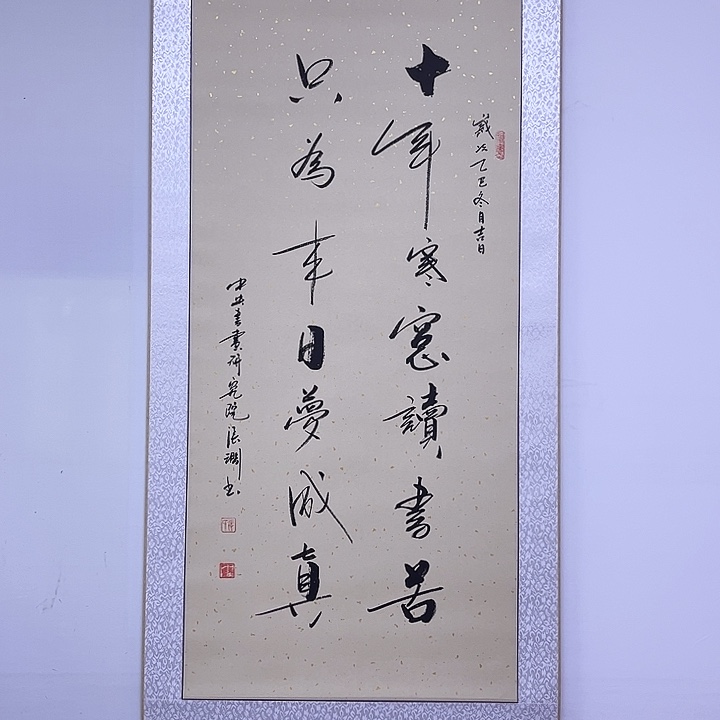 歲次乙巳冬月吉日
十年寒窓讀書苦
只為来日夢成真
中央書畫研究院張淵书